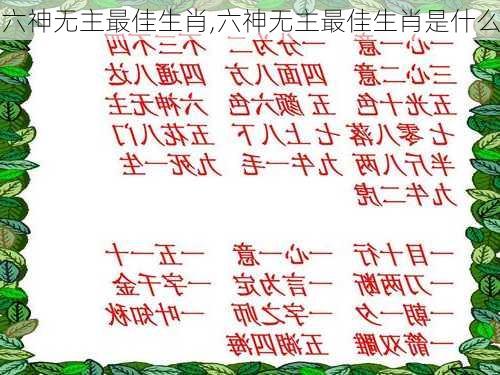 六神无主最佳生肖,六神无主最佳生肖是什么
一心一意 一分为二 不三不四
三心二意 四面八方 四通八达
五光十色 五颜六色 六神无主
七零八落 七上八下 五花八门
半斤八两 九牛一毛 九死一生
九牛二虎
一目十行 一心一意 一五一十
一刀两断 一言为定 一字千金
一朝一夕 一字之师 一叶知秋
一箭双雕 五湖四海